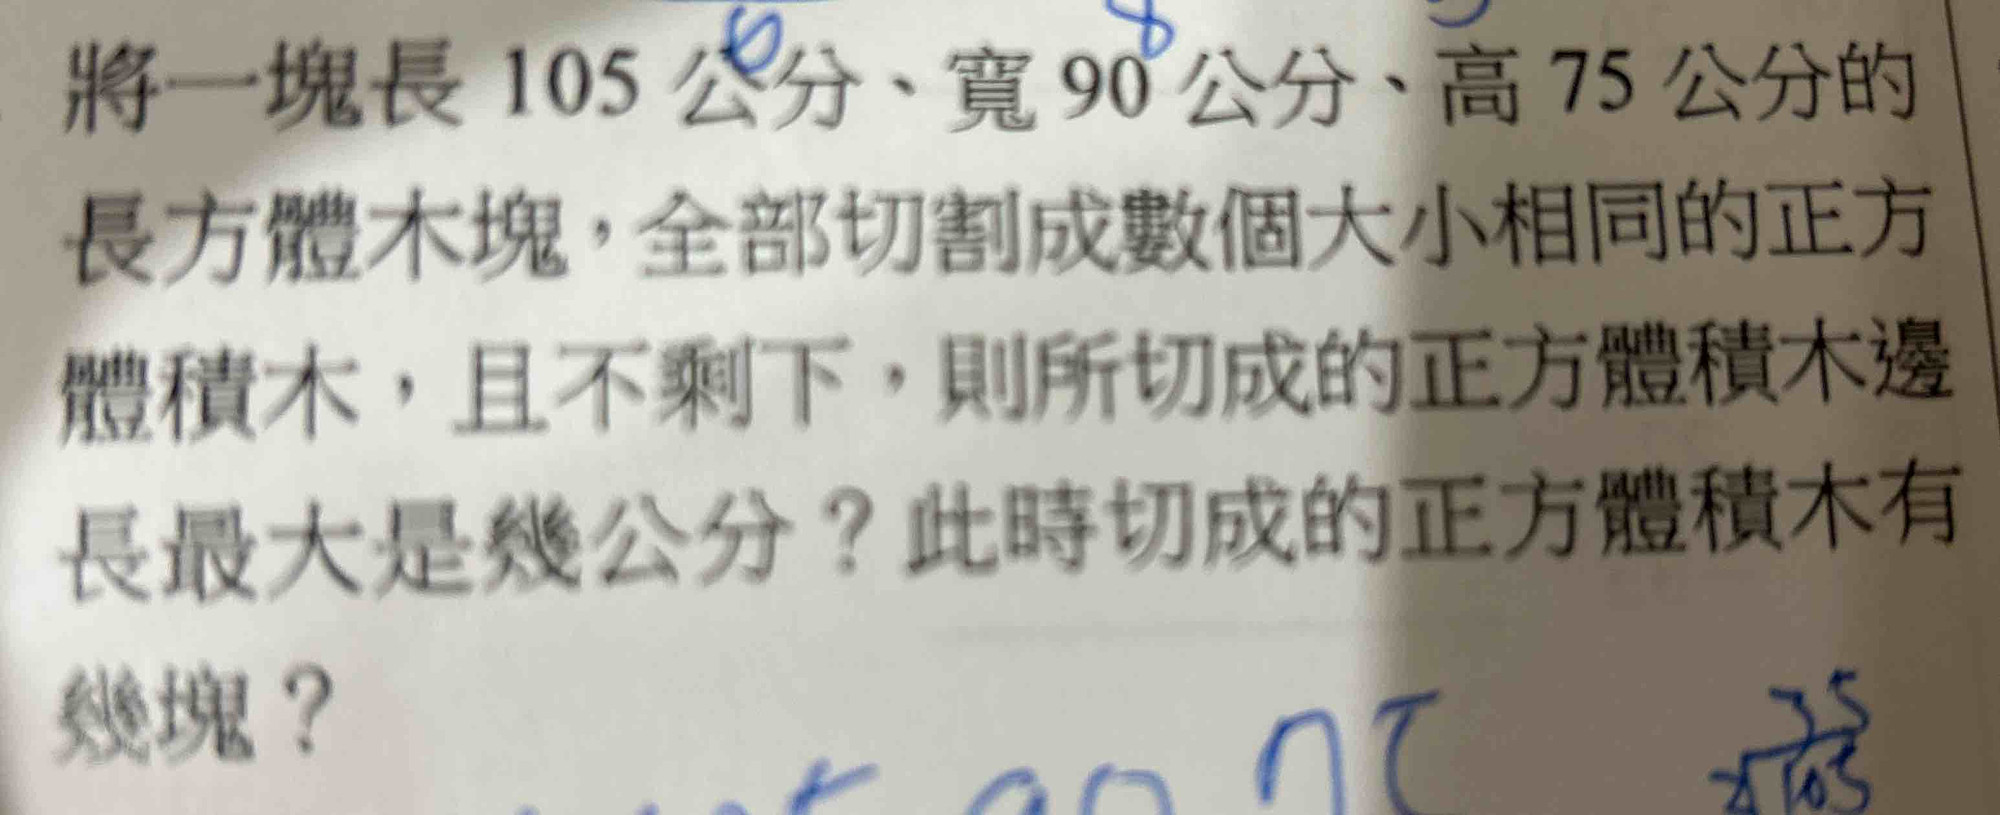 6 8
將一塊長 105 公分、寬 90 公分、高 75 公分的
長方體木塊，全部切割成數個大小相同的正方
體積木，且不剩下，則所切成的正方體積木邊
長最大是幾公分？此時切成的正方體積木有
幾塊？
35
90 75
105